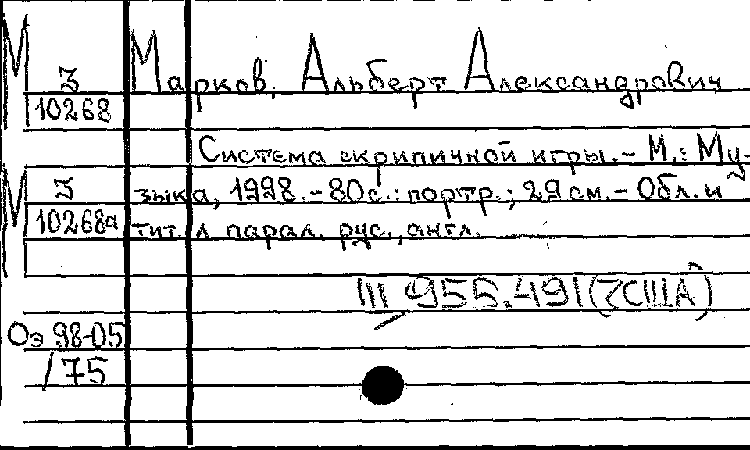 М З 10268
Марков, Альберт Александрович
Система скрипичной игры. - М.: Му-
М З 10268а
зыка, 1998. - 80 с.: портр.; 29 см. - Обл. и
тит. л парал. рус., англ.
III 955.491(7США)
Оэ 98-05
/75